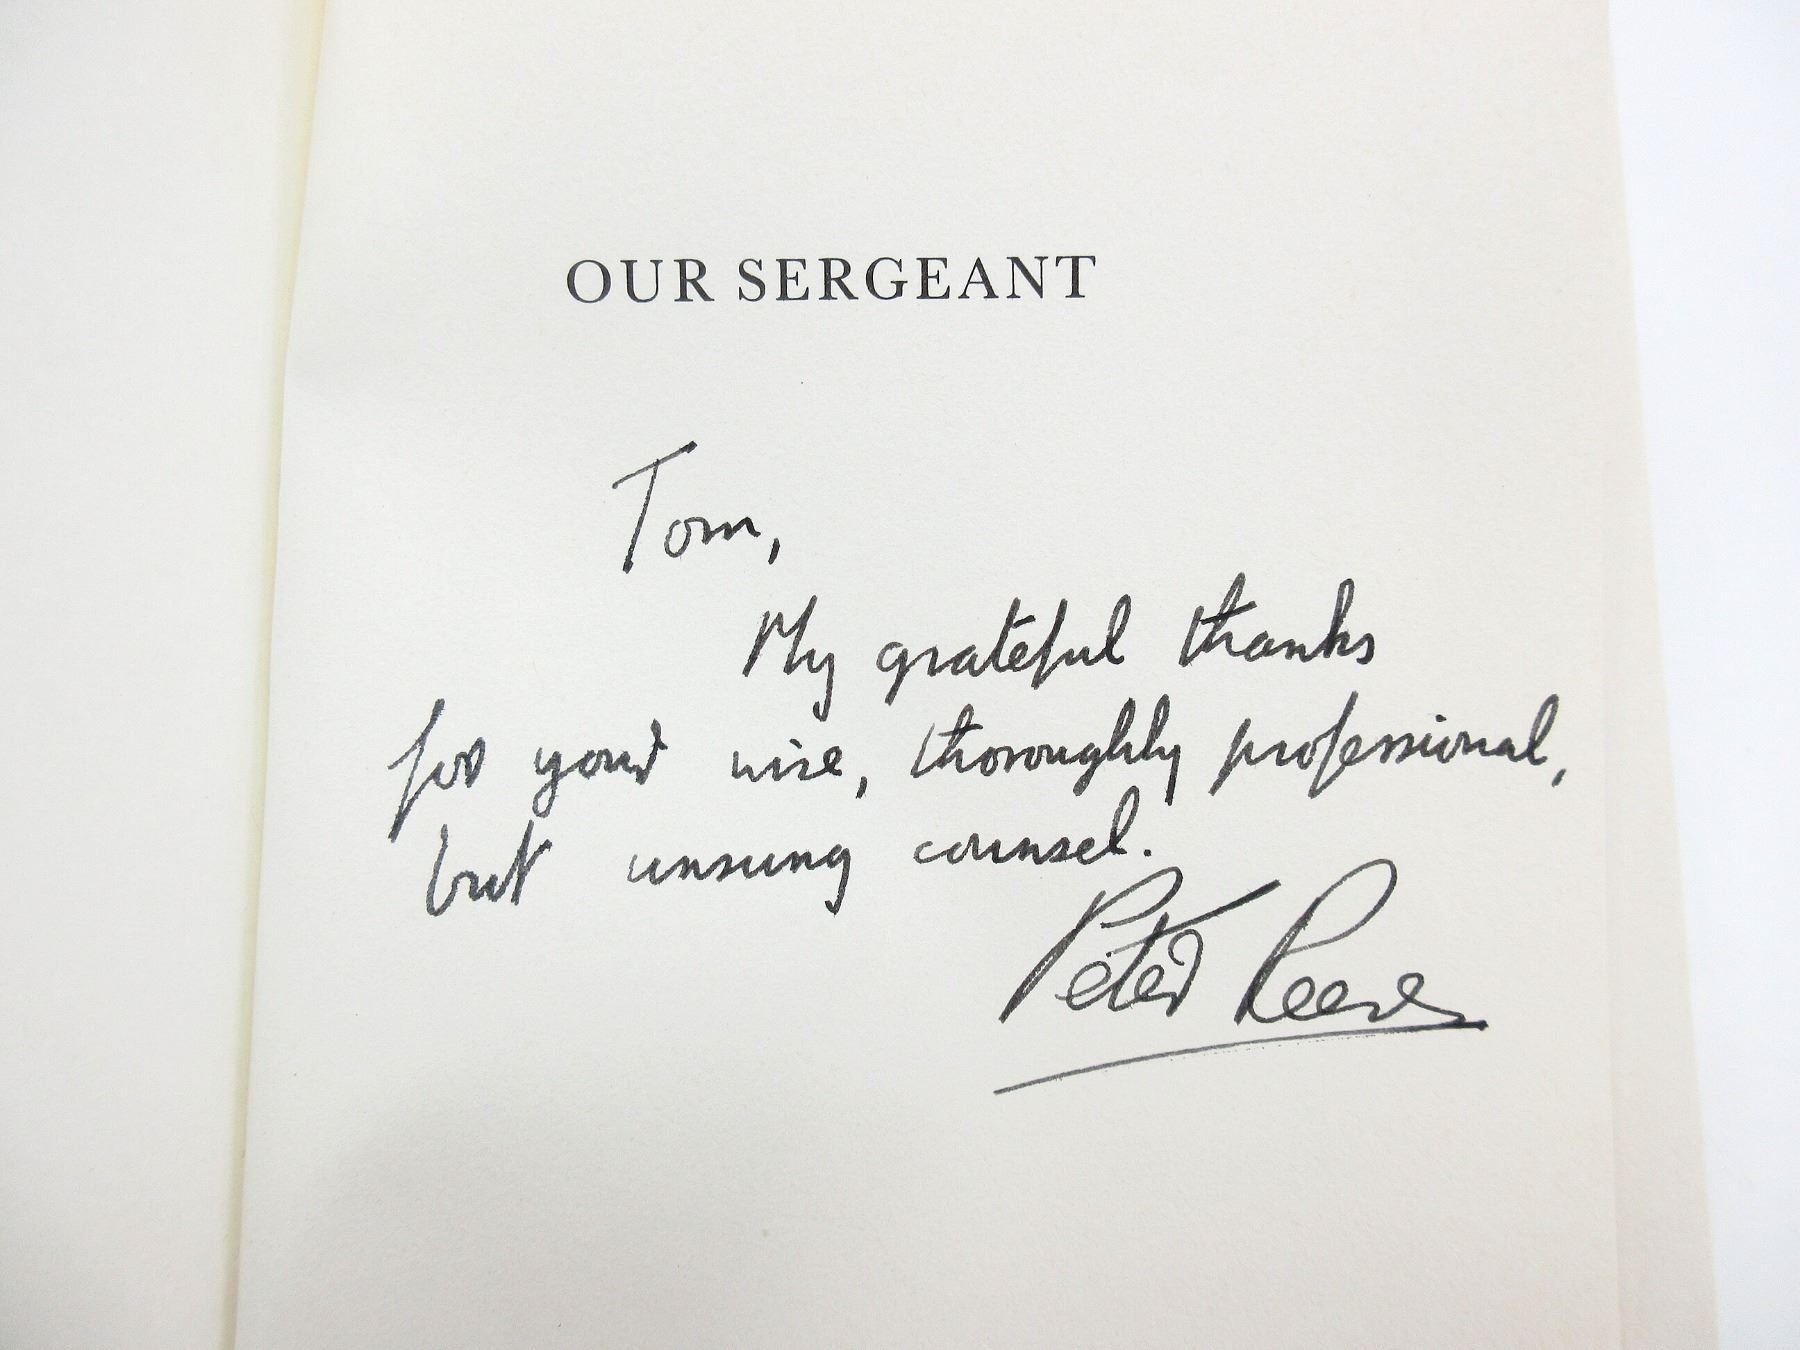 OUR SERGEANT
Tom,
My grateful thanks
for your wise, thoroughly professional,
but unsung counsel.
Peter Reeve